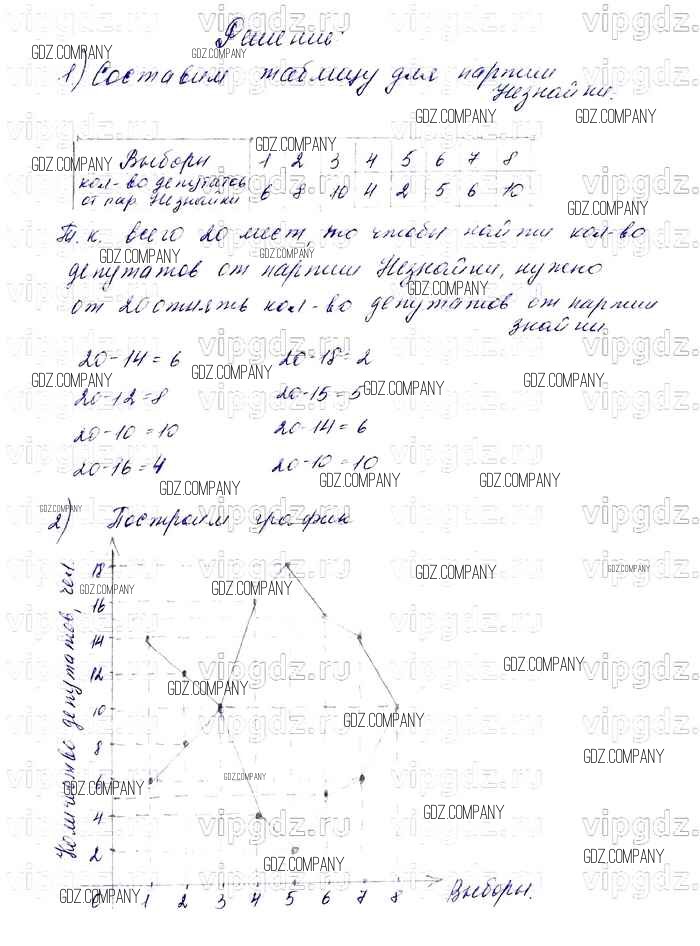 Решение:
1) Составим таблицу для партии
Незнайки.
Выборы 1 2 3 4 5 6 7 8
кол-во депутатов
от пар. Незнайки 6 8 10 4 2 5 6 10
Т.к. всего 20 мест, то чтобы найти кол-во
депутатов от партии Незнайки, нужно
от 20 отнять кол-во депутатов от партии
знайки.
20-14=6 20-18=2
20-12=8 20-15=5
20-10=10 20-14=6
20-16=4 20-10=10
2) Построим график
Количество депутатов, чел.
18
16
14
12
10
8
6
4
2
0 1 2 3 4 5 6 7 8 Выборы.
GDZ.COMPANY
vipgdz.ru